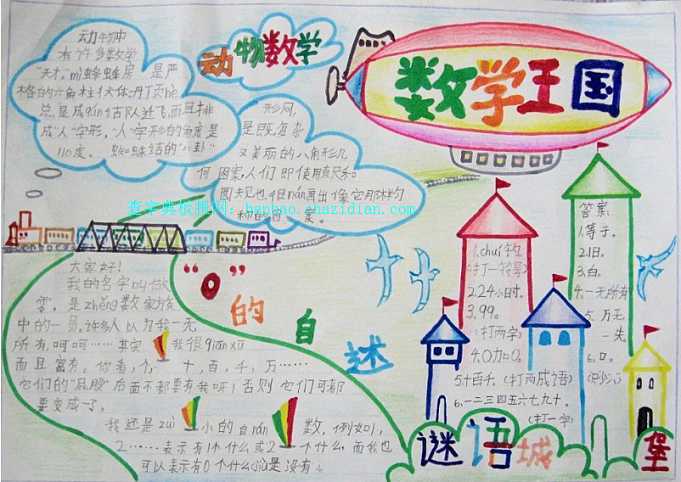 动物数学
动物中
有许多数学
"天才"mì蜂蜂房 是严
格的六角柱状体。丹顶鹤
总是成qún结队迁飞,而且排
成"人"字形。"人"字形的角度是
110度。蜘蛛结的"八卦"
形网,
是既复杂
又美丽的八角形几
何图案,人们即使用直尺和
圆规也很nán画出像它那样匀
称的图案。
查字典板报网:banbao.chazidian.com
数学王国
大家好!
我的名字叫做
零,是zhěng数家族
中的一员,许多人以为我一无
所有,呵呵……其实 我很qiān虚
而且富有。你看,个,十,百,千,万……
它们的"屁股"后面不都要有我呀!否则它们可都
要变成1了。
我还是zuì小的自rán数,例如1,
2……表示有1个什么或2个什么,而我也
可以表示有0个什么就是没有。
"0"
的
自
述
1.chuí钓
(打一符号)
2.24小时。
3.99。
(打两字)
4.0力0。
5.十百千。(打两成语)
6.一二三四五六七九十。
(打一字)
答案
1.等于。
2.1日。
3.白。
4.一无所有
5.万无
一失
6.口。
谜语城堡